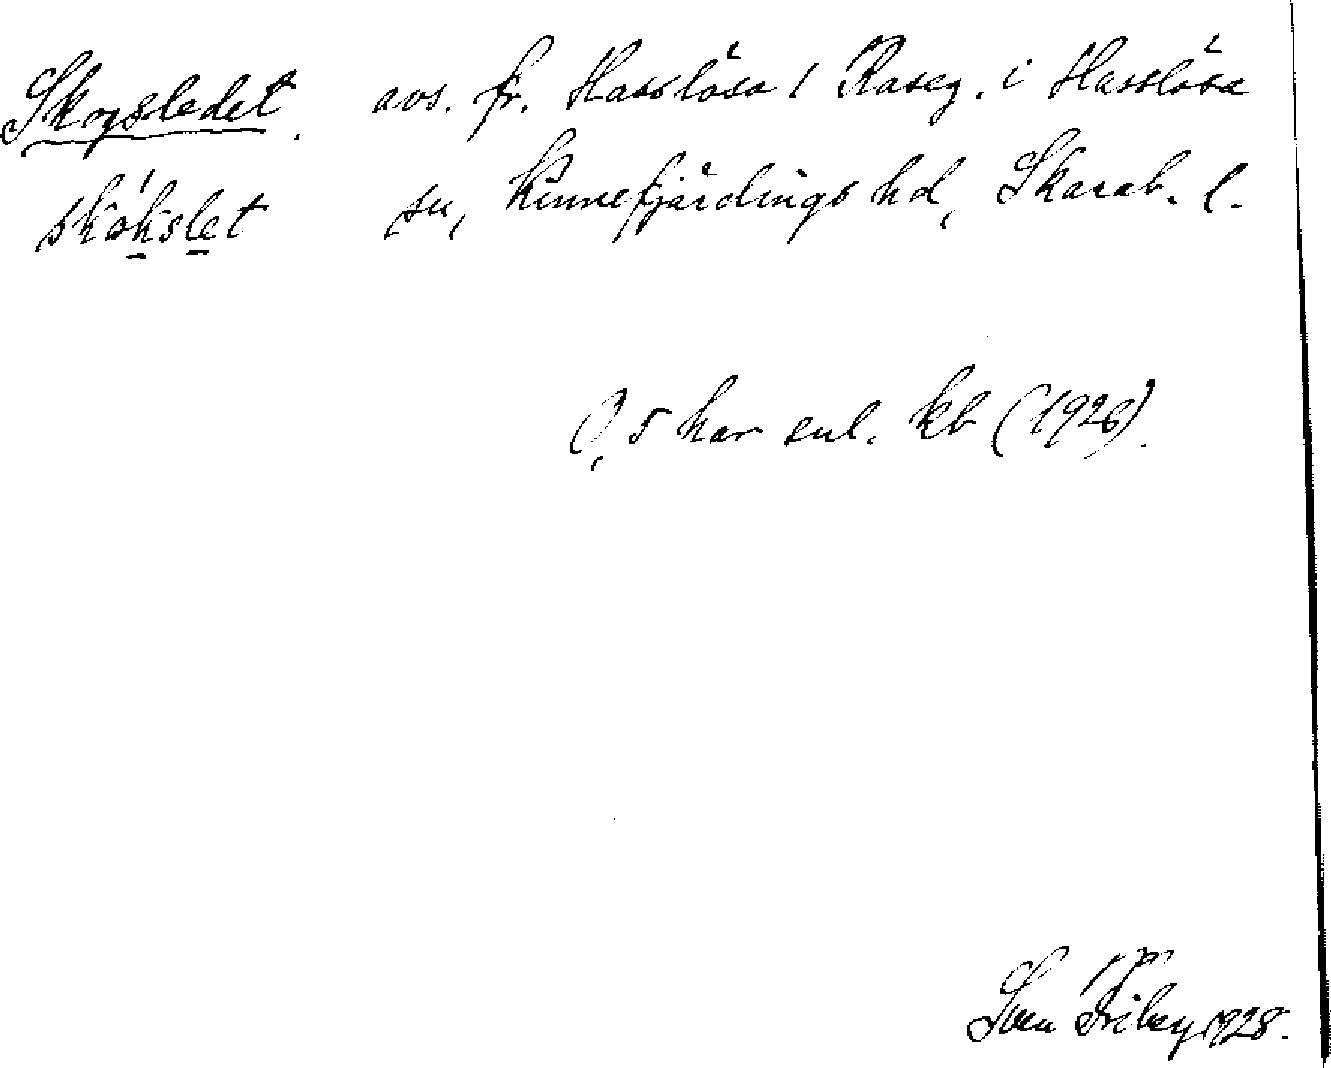 Skogsledet. avs. fr. Hasslösa 1 Raseg. i Hasslösa
skókslet sn, Kinnefjärdings hd, Skarab. l.
0,5 har enl. kb (1926).
Sven Friberg 1928.